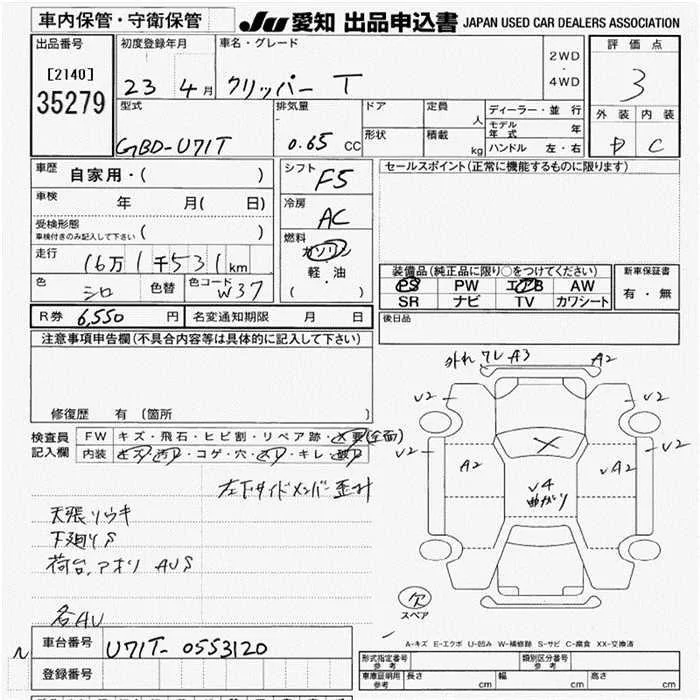 車内保管・守衛保管
JU 愛知 出品申込書 JAPAN USED CAR DEALERS ASSOCIATION
出品番号 初度登録年月 車名・グレード 評価点
[2140] 23 4月 クリッパー T 2WD・4WD 3
35279
型式 排気量 ドア 定員 人 ディーラー・並行 外装 内装
モデル年式 年
GBD-U71T 0.65 CC 形状 積載 kg ハンドル 左・右 D C
車歴 自家用・( ) シフト F5 セールスポイント(正常に機能するものに限ります)
車検 年 月( 日) 冷房 AC
受検形態
車検付きのみ記入して下さい ( )
燃料 ガソリン
走行 16万1千531km 軽・油 装備品(純正品に限り○をつけてください) 新車保証書
色 シロ 色替 色コード W37 ( ) PS PW エアB AW 有・無
SR ナビ TV カワシート
R券 6,550円 名変通知期限 月 日 後日品
注意事項申告欄(不具合内容等は具体的に記入して下さい)
外れ ワレ A3 A2
V2 V2
修復歴 有 (箇所 )
検査員 FW キズ・飛石・ヒビ割・リペア跡・X要(全面)
記入欄 内装 キズ・汚れ・コゲ・穴・スレ・キレ・破れ
V2 V2
A2 X VA2
左下サイドメンバー歪み V4 曲がり
天張リウキ
下廻りS
荷台、アオリ AUS
欠
スペア
各AU
A-キズ E-エクボ U-凹み W-補修跡 S-サビ C-腐食 XX-交換済
車台番号 U71T-0553120
形式指定番号 参考 類別区分番号 参考
登録番号 車庫証明用 参考 長さ cm 幅 cm 高さ cm